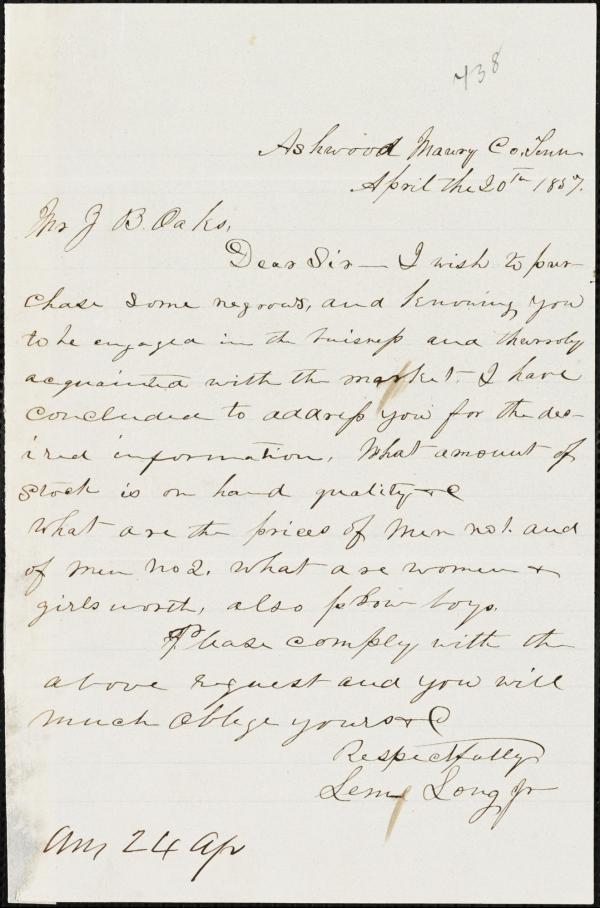 438
Ashwood Maury Co. Tenn
April the 20th 1857.
Mr J B. Oaks,
Dear Sir — I wish to pur-
chase some negrows, and knowing you
to be engaged in the buisness and tharroly
acquainted with the market. I have
concluded to address you for the des-
ired information. What amount of
stock is on hand quality &C
What are the prices of men no1. and
of men no2. what are women &
girls worth, also plow boys.
Please comply with the
above request and you will
much oblege yours &C
Respectfully
Lem Long Jr
Ans 24 Ap